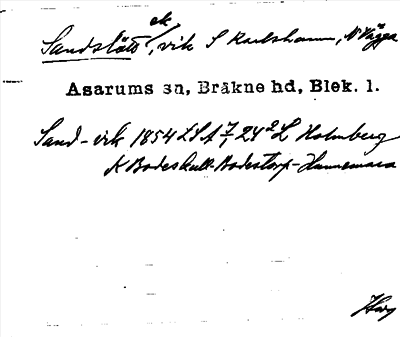 ek
Sandslätt, vik S Karlshamn, N Vägga
Asarums sn, Bräkne hd, Blek. l.
Sand-vik 1854 LSA 7, 24² L Holmberg
K Bodeskull-Bodestorp-Hunnemara